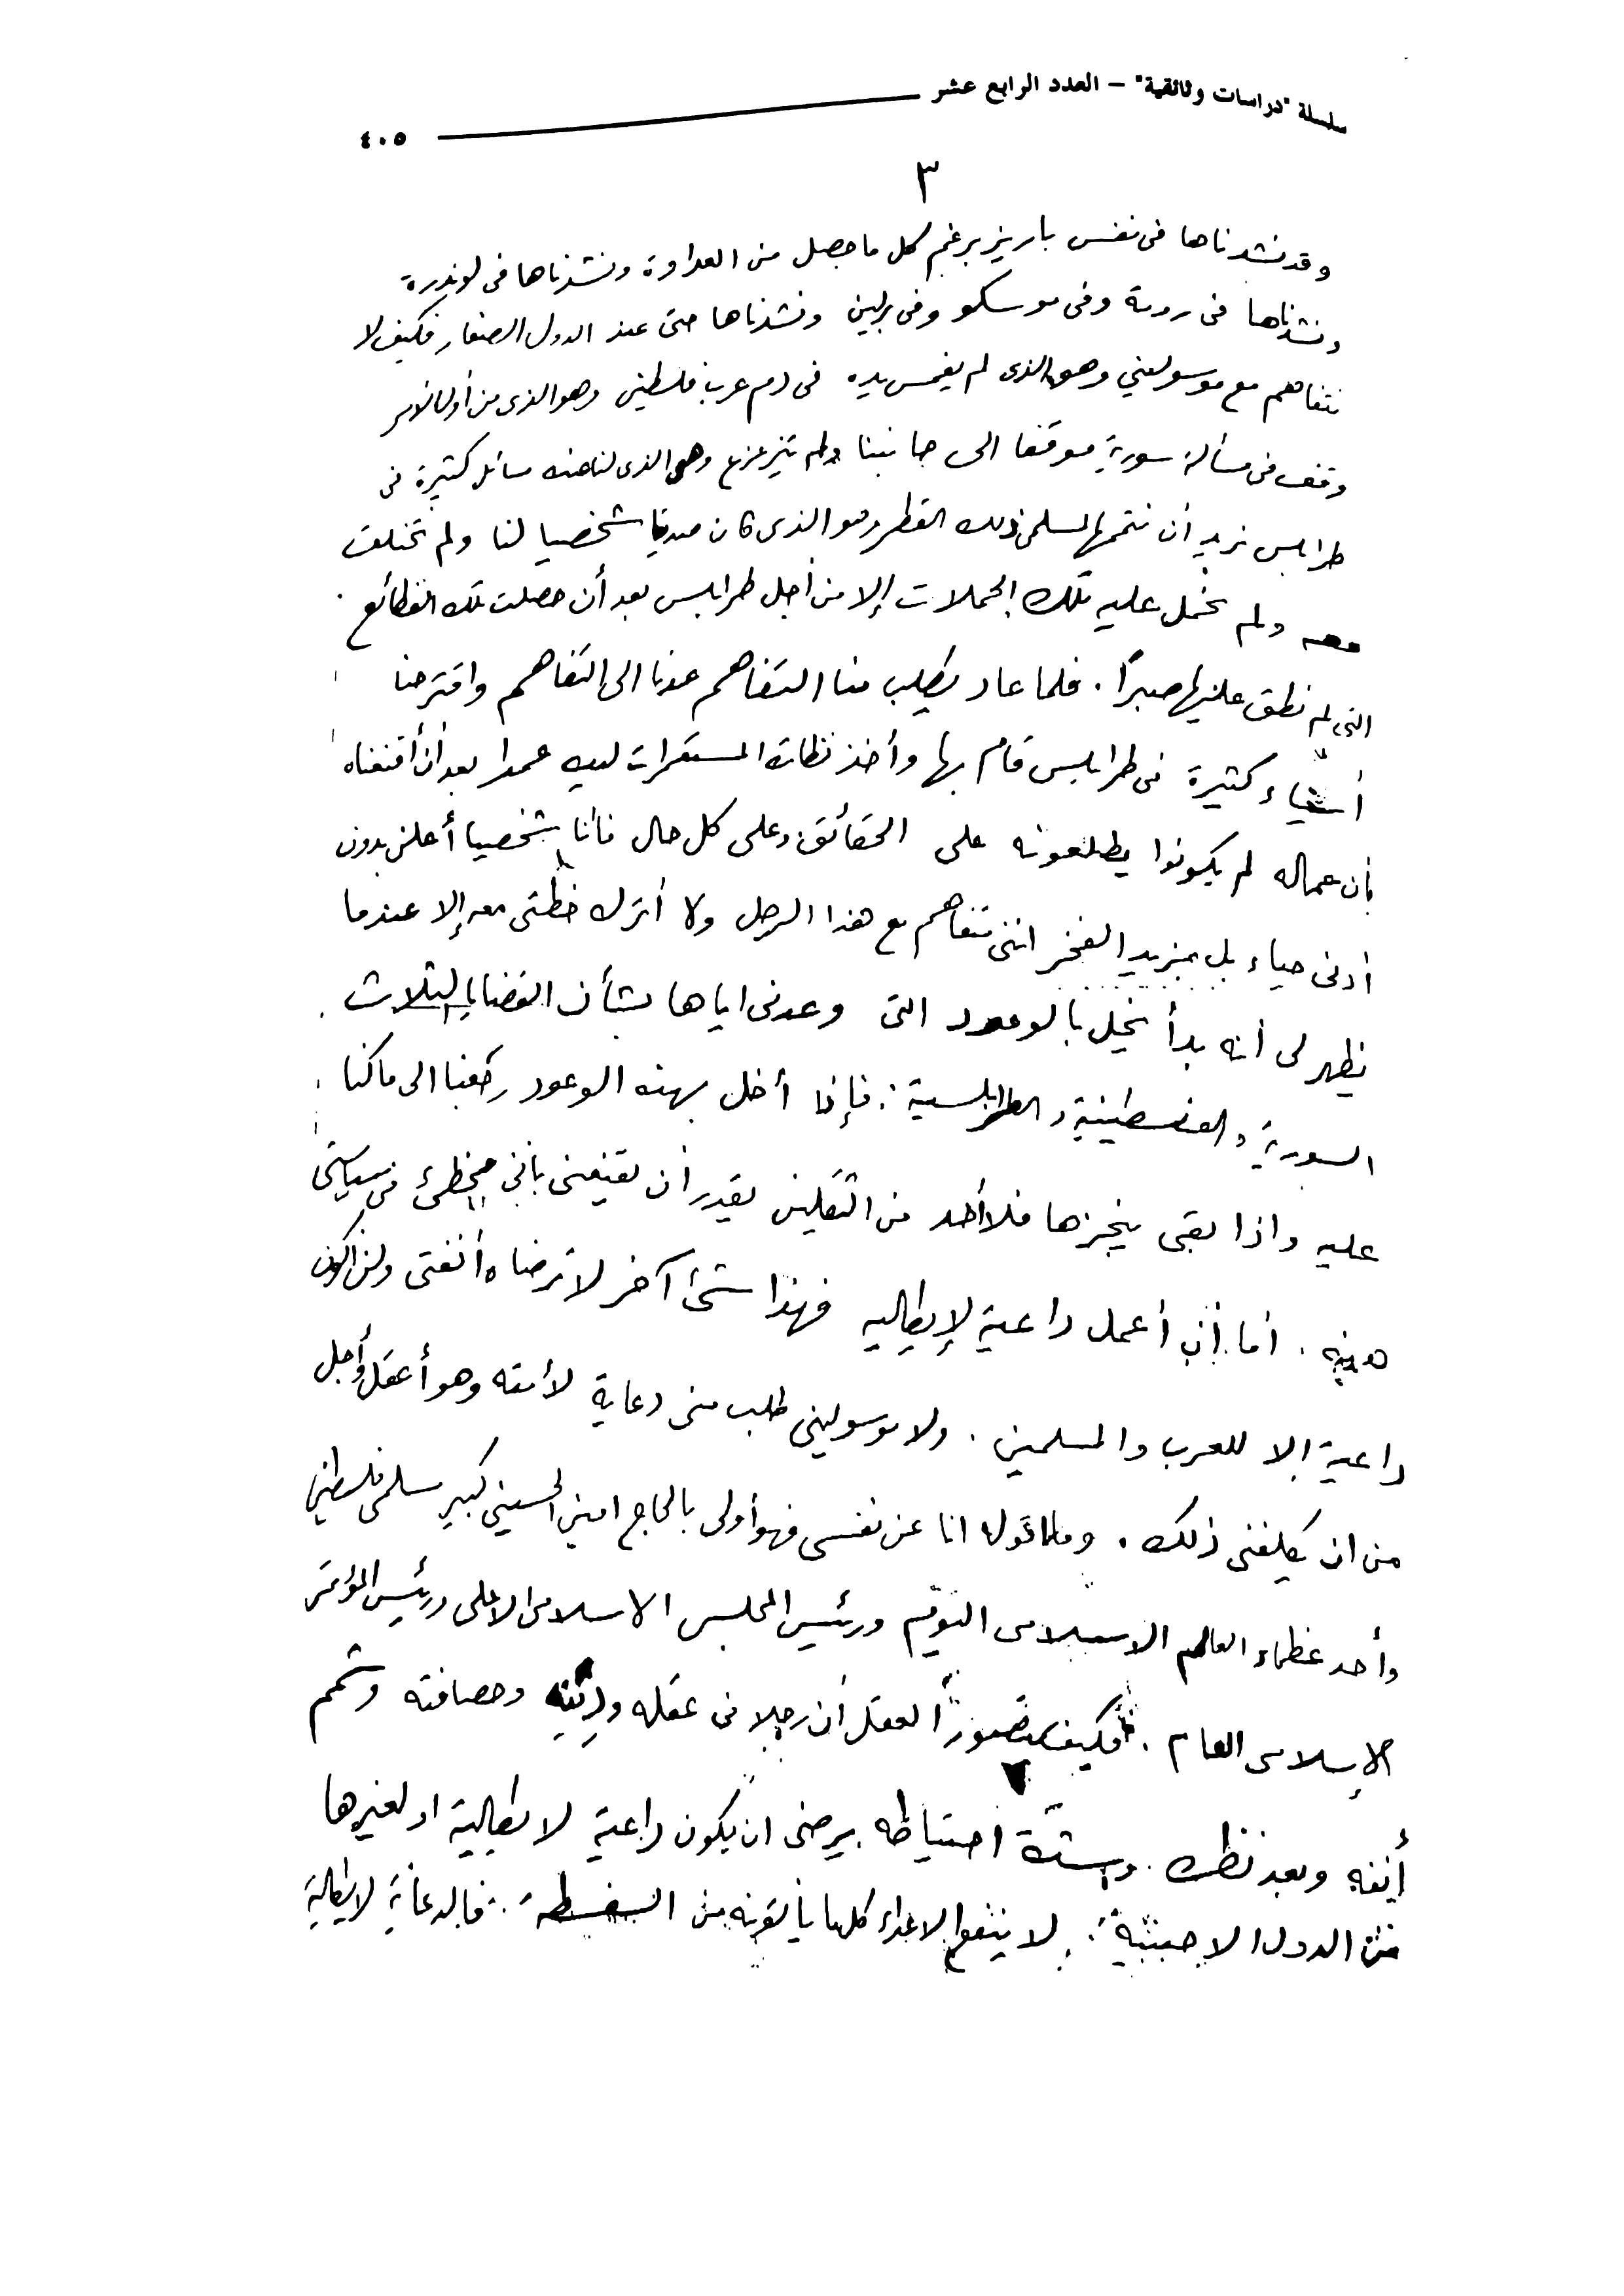 سلسلة "دراسات وثائقية" – العدد الرابع عشر
٤٠٥
٣
وقد نشدناها فى نفس باريز برغم كل ما حصل من العداوة ونشدناها فى لوندرة
ونشدناها فى رومة وفى موسكو وفى برلين ونشدناها حتى عند الدول الصغار فكيف لا
نتفاهم مع موسولينى وهو الذى لم يغمس يده فى دم عرب فلسطين وهو الذى من أول الأمر
وقف فى مسألة سورية موقفا الى جانبنا ولم يتزعزع وهو الذى لنا عنده مسائل كثيرة فى
طرابلس نريد أن نتممها لمسلمى ذلك القطر وهو الذى كان صديقا شخصيا لنا ولم نختلف
معه ولم نحمل عليه تلك الحملات إلا من أجل طرابلس بعد أن حصلت تلك الفظائع
التى لم نطق عليها صبرًا . فلما عاد يطلب منا التفاهم عدنا الى التفاهم واقترحنا
أشياء كثيرة فى طرابلس قام بها وأخذ نظارة المستعمرات لديه عمدا بعد أن أقنعناه
بأن عماله لم يكونوا يطلعونه على الحقائق وعلى كل حال فأنا شخصيا أعلن بدون
أدنى حياء بل بمزيد الفخر اننى متفاهم مع هذا الرجل ولا أترك خطتى معه إلا عندما
يظهر لى أنه بدأ يخل بالوعود التى وعدنى اياها بشأن القضايا الثلاث
السورية والفلسطينية والطرابلسية . فإذا أخل بهذه الوعود رجعنا الى ما كنا
عليه واذا بقى ينجزها فلا أحد من الثقلين يقدر أن يقنعنى بانى مخطئ فى سياستى
هذه . أما أنى أعمل داعية لإيطاليه فهذا شئ آخر لا ترضاه أنفتى ولن أكون
داعية إلا للعرب والمسلمين . ولا موسولينى طلب منى دعاية لأمته وهو أعقل وأجل
من ان يكلفنى ذلك . وما أقوله انا عن نفسى فهو أولى بالحاج امين الحسينى كبير مسلمى فلسطين
وأحد عظماء العالم الاسلامى اليوم ورئيس المجلس الاسلامى الاعلى ورئيس المؤتمر
الإسلامى العام . فكيف يتصور العقل أن رجلا فى عقله ودينه وحصافته وشمم
أنفه وبعد نظره وشدة احتياطه يرضى ان يكون داعية لايطالية او لغيرها
من الدول الاجنبية . لا ينفع الاعداء كلها يأتونه من السفسطة . فالدعاية لايطالية